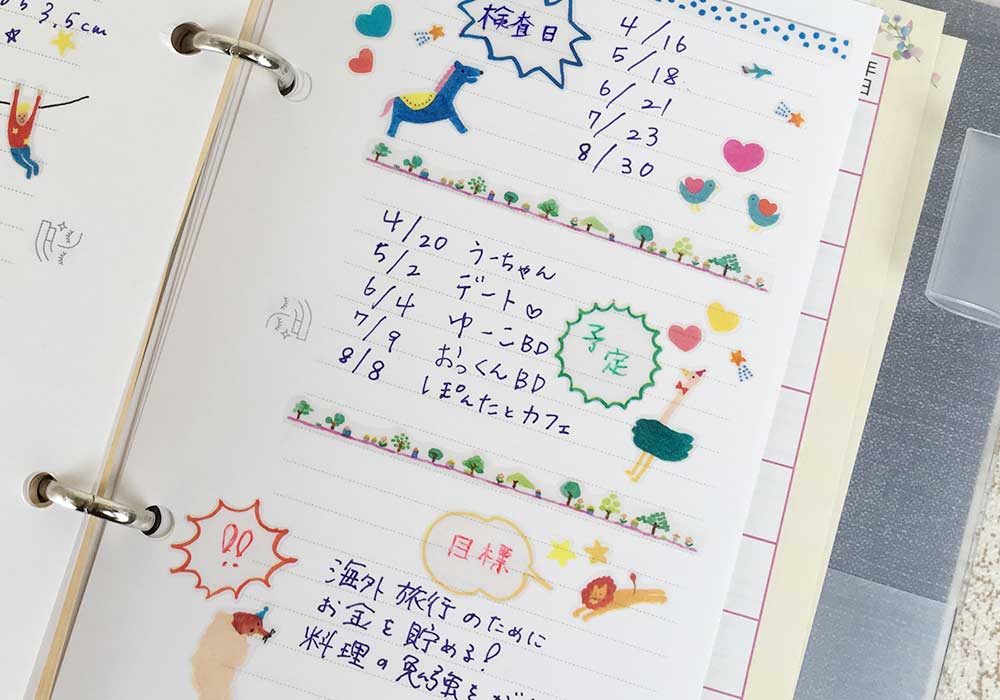 3.5cm
検査日
4/16
5/18
6/21
7/23
8/30
4/20 うーちゃん
5/2 デート♡
6/4 ゆーこBD
7/9 おっくんBD
8/8 しぽんたとカフェ
予定
!!
目標
海外旅行のために
お金を貯める!
料理の勉強を